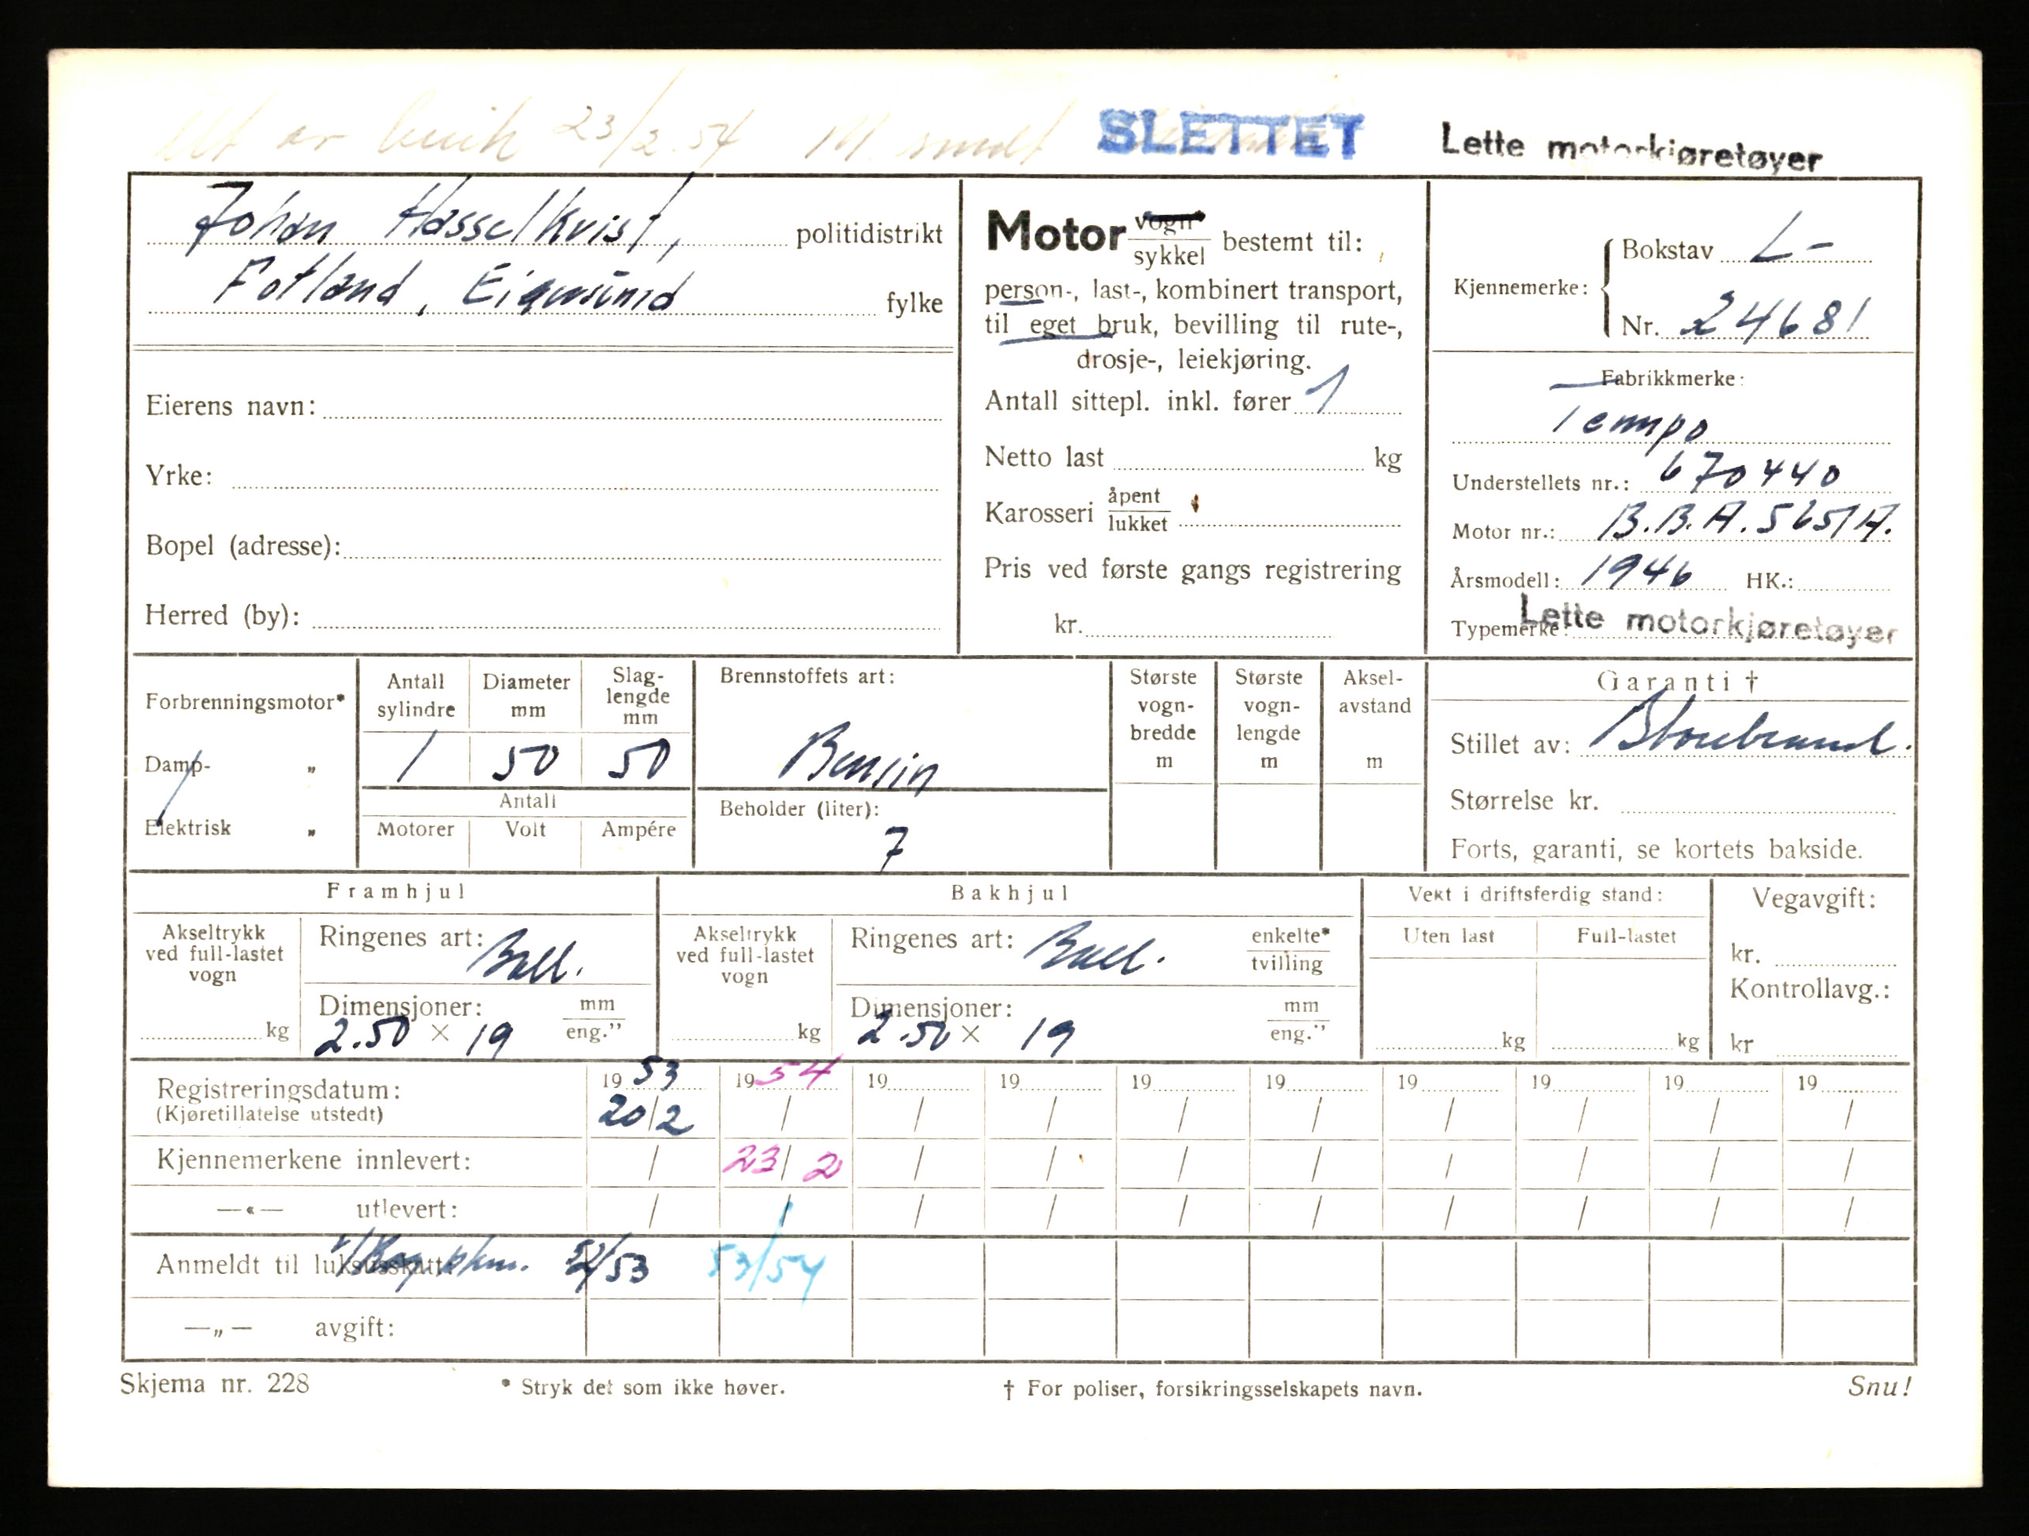 Ut av bruk 23/2.54
SLETTET
Lette motorkjøretøyer
Johan Hasselkvist, politidistrikt
Fotland, Eigersund fylke
Eierens navn:
Yrke:
Bopel (adresse):
Herred (by):
Motor vogn* / sykkel bestemt til:
person-, last-, kombinert transport,
til eget bruk, bevilling til rute-,
drosje-, leiekjøring.
Antall sittepl. inkl. fører 1
Netto last kg
Karosseri åpent / lukket
Pris ved første gangs registrering
kr.
Kjennemerke: Bokstav L-
Nr. 24681
Fabrikkmerke:
Tempo
Understellets nr.: 670440
Motor nr.: B.B.A. 5651A.
Årsmodell: 1946 HK.:
Typemerke: Lette motorkjøretøyer
Forbrenningsmotor*
Damp- „
Elektrisk „
Antall sylindre
1
Diameter mm
50
Slag-lengde mm
50
Antall
Motorer Volt Ampére
Brennstoffets art:
Bensin
Beholder (liter):
7
Største vogn-bredde m
Største vogn-lengde m
Aksel-avstand m
Garanti †
Stillet av: Storebrand.
Størrelse kr.
Forts, garanti, se kortets bakside.
Framhjul
Akseltrykk ved full-lastet vogn
kg
Ringenes art: Ball.
Dimensjoner: mm / eng."
2.50 × 19
Bakhjul
Akseltrykk ved full-lastet vogn
kg
Ringenes art: Ball. enkelte* / tvilling
Dimensjoner: mm / eng."
2.50 × 19
Vekt i driftsferdig stand:
Uten last Full-lastet
kg kg
Vegavgift:
kr.
Kontrollavg.:
kr
Registreringsdatum: 19 53 19 54 19 19 19 19 19 19 19 19
(Kjøretillatelse utstedt) 20/2 / / / / / / / / /
Kjennemerkene innlevert: / 23/2 / / / / / / / /
—«— utlevert: / / / / / / / / / /
Anmeldt til luksusskatt 52/53 53/54
—„— avgift:
Skjema nr. 228
* Stryk det som ikke høver.
† For poliser, forsikringsselskapets navn.
Snu!